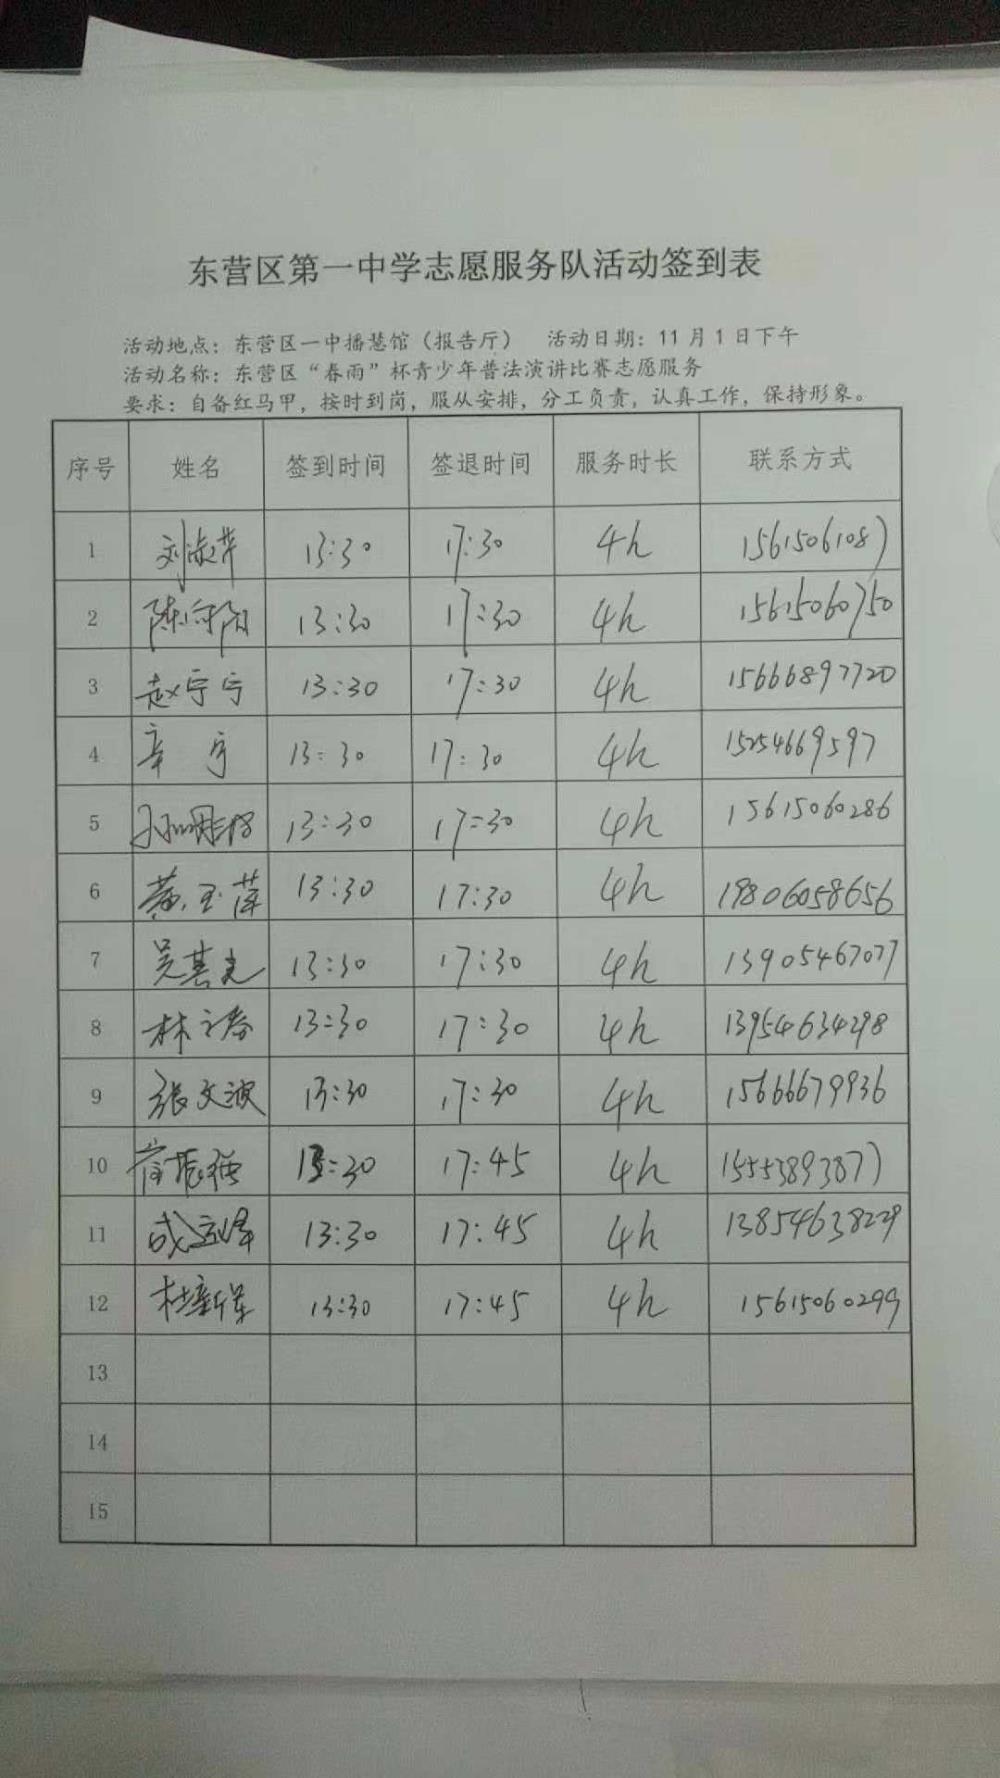 东营区第一中学志愿服务队活动签到表
活动地点：东营区一中播慧馆（报告厅） 活动日期：11月1日下午
活动名称：东营区“春雨”杯青少年普法演讲比赛志愿服务
要求：自备红马甲，按时到岗，服从安排，分工负责，认真工作，保持形象。
序号 姓名 签到时间 签退时间 服务时长 联系方式
1 刘淑萍 13:30 17:30 4h 15615061087
2 陈向阳 13:30 17:30 4h 15615060750
3 赵宁宁 13:30 17:30 4h 15666897720
4 辛宁 13:30 17:30 4h 15254669597
5 13:30 17:30 4h 15615060286
6 黄玉萍 13:30 17:30 4h 19806058656
7 吴其光 13:30 17:30 4h 13905467077
8 林之春 13:30 17:30 4h 13954634298
9 张文波 13:30 17:30 4h 15666679936
10 13:30 17:45 4h 15553893877
11 13:30 17:45 4h 13854638229
12 杜新军 13:30 17:45 4h 15615060299
13
14
15